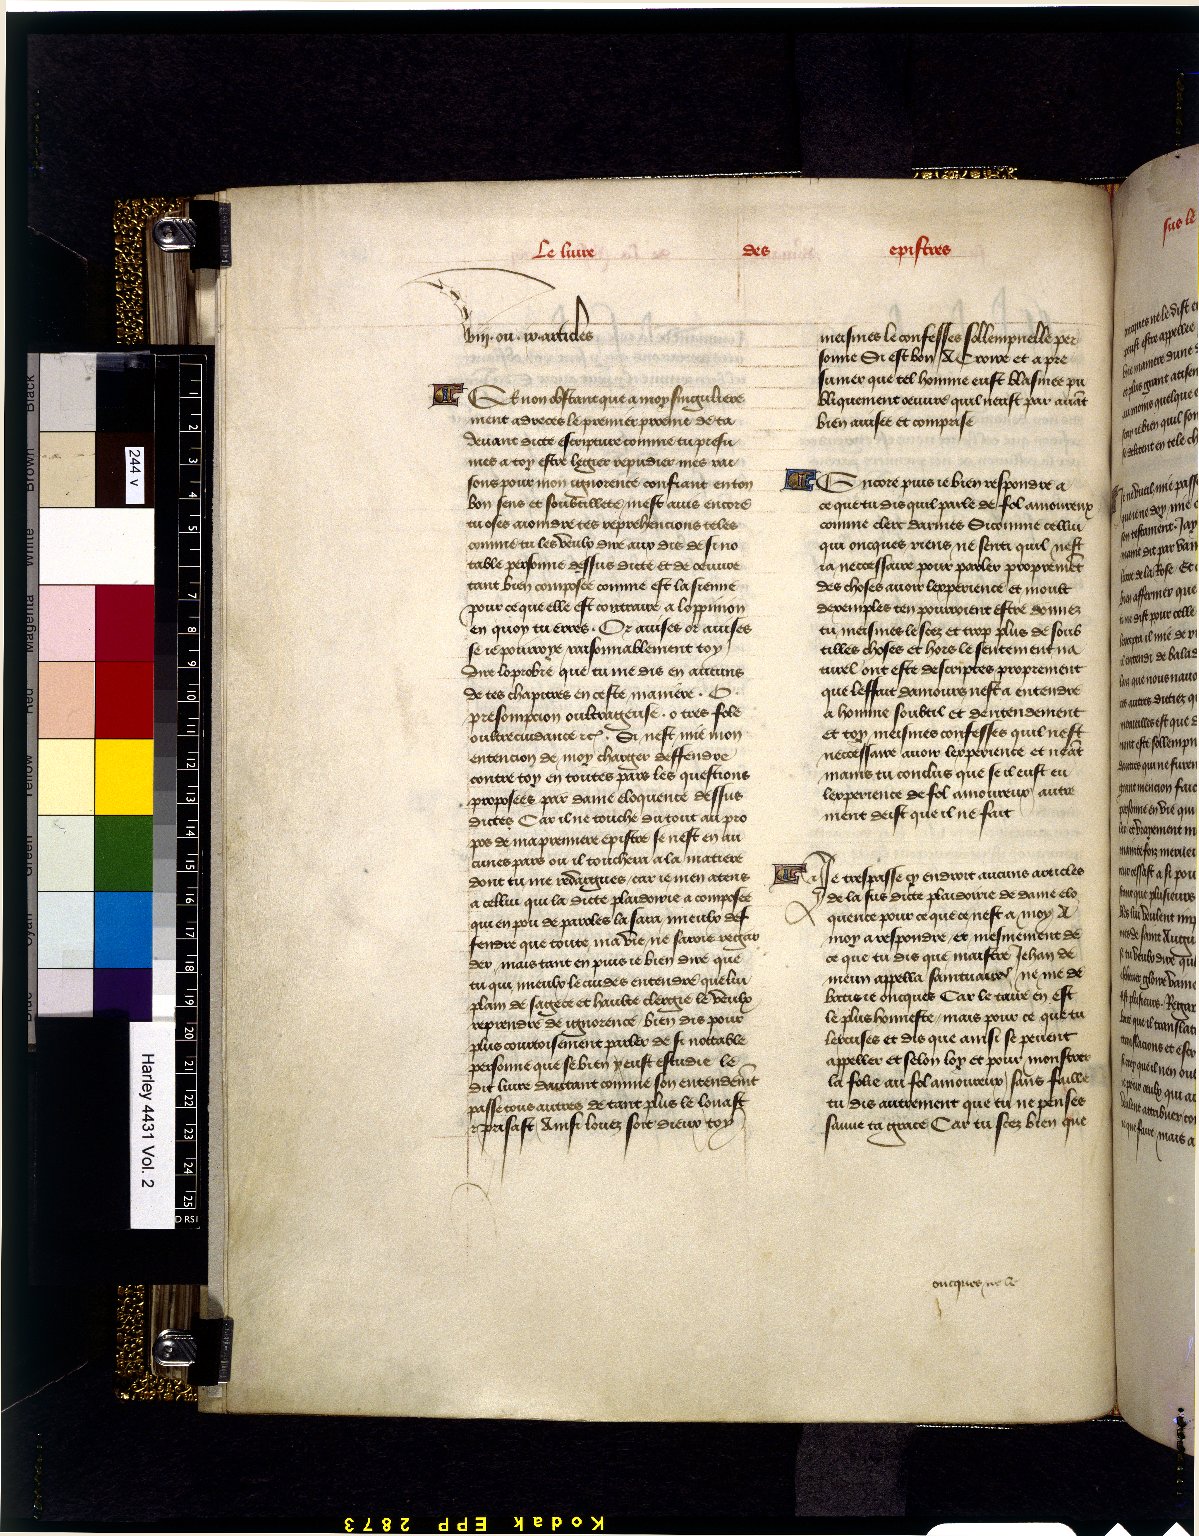 Le livre des epistres
viii. ou .ix. articles
Et non obstant que a moy singuliere
ment adreces le premier proeme de ta
devant dicte escripture comme tu presu
mes a toy estre legier repudier mes rai
sons pour mon ignorence confiant en ton
bon sens et soubtillete mest avis encore
tu oses aioindre tes reprehencions teles
comme tu les veulx dire aux dis de si no
table personne dessus dicte et de oeuvre
tant bien composee comme est la sienne
pour ce que elle est contraire a loppinion
en quoy tu erres. Or avises or avises
se ie pourroye raisonnablement toy
dire loprobre que tu me dis en aucuns
de tes chapitres en ceste maniere. O
presompcion oultrageuse. o tres fole
oultrecuidance etc. Si nest mie mon
entencion de moy charger deffendre
contre toy en toutes pars les questions
proposees par dame eloquence dessus
dictes Car il ne touche du tout au pro
pos de ma premiere epistre se nest en au
cunes pars ou il touchera a la matiere
dont tu me redargues car ie men atens
a cellui qui la dicte plaidoirie a composee
qui en pou de paroles la sara mieulx def
fendre que toute ma vie ne saroie regar
der, mais tant en puis ie bien dire que
tu qui mieulx le cuides entendre que lui
plain de sagece et haulte clergie le veulx
reprendre de ignorence bien dis pour
plus courtoisement parler de si nottable
personne que se bien y eust estudie le
dit livre dautant comme son entendemt
passe tous autres de tant plus le louast
et prisast Ainsi louez soit dieux toy
meismes le confesses sollempnelle per
sonne Si est bon A Croire et a pre
sumer que tel homme eust blasmee pu
bliquement oeuvre quil neust par avāt
bien avisee et comprise
Encore puis ie bien respondre a
ce que tu dis quil parle de fol amoureux
comme clerc darmes Si comme cellui
qui oncques riens ne senti quil nest
ia neccessaire pour parler proprement
des choses avoir lexperience et moult
dexemples ten pourroient estre donnez
tu meismes le scez et trop plus de soub
tilles choses et hors le sentement na
turel ont este descriptes proprement
que leffait damours nest a entendre
a homme soubtil et dentendement
et toy meismes confesses quil nest
neccessaire avoir lexperience et neāt
mains tu conclus que se il eust eu
lexperience de fol amoureux autre
ment deist que il ne fait
Je trespasse cy endroit aucuns articles
de la sus dicte plaidoirie de dame elo
quence pour ce que ce nest a moy A
moy a respondre, et mesmement de
ce que tu dis que maistre Jehan de
meun appella saintuaire ne me de
batis ie oncques Car le taire en est
le plus honneste mais pour ce que tu
lexcuses et dis que ainsi se peuent
appeller et selon loy et pour monstrer
la folie au fol amoureux sans faille
tu dis autrement que tu ne penses
sauve ta grace Car tu scez bien que
oncques ne le
sus le
244 v
Harley 4431 Vol. 2
Black
Brown
White
Magenta
Red
Yellow
Green
Cyan
1 2 3 4 5 6 7 8 9 10 11 12 13 14 15 16 17 18 19 20 21 22 23 24 25
Kodak EPP 2873